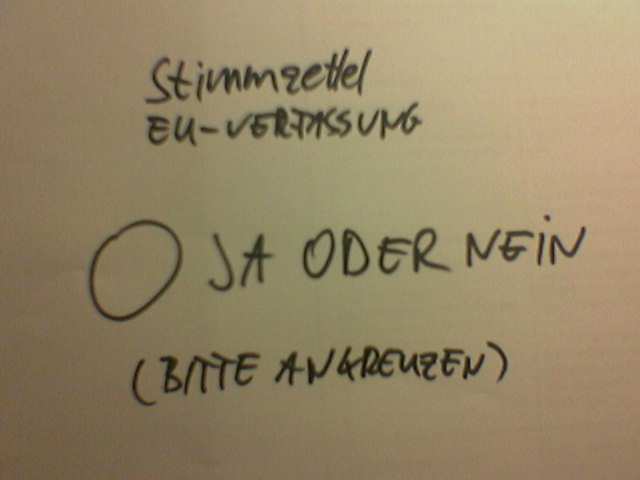 Stimmzettel
EU-VERFASSUNG
O JA ODER NEIN
(BITTE ANKREUZEN)